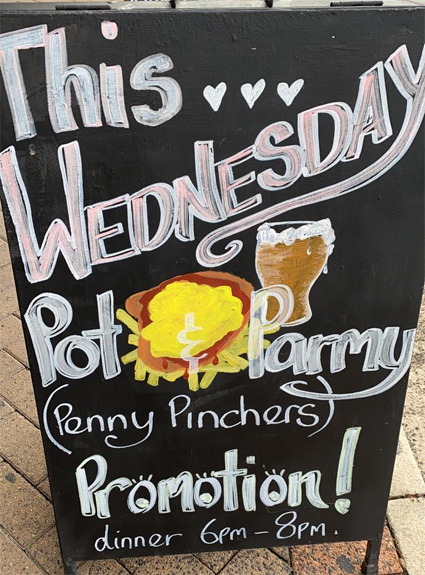 This...
WEDNESDAY
Pot & Parmy
(Penny Pinchers)
Promotion!
dinner 6pm - 8pm.